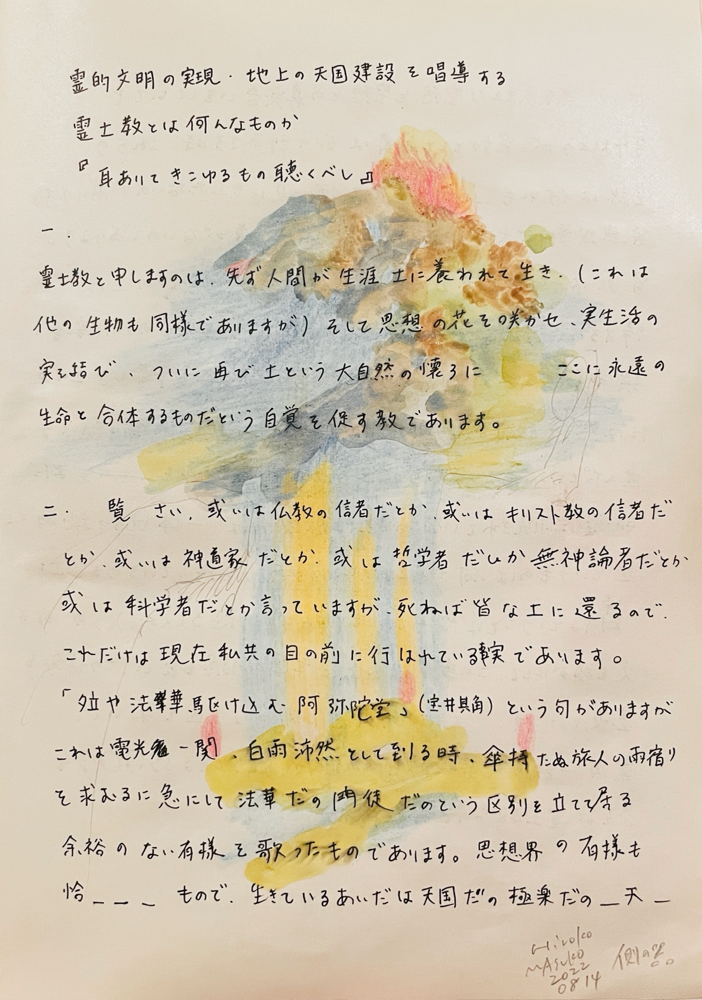 霊的文明の実現・地上の天国建設を唱導する
霊土教とは何んなものか
『耳ありてきこゆるもの聴くべし』
一.
霊土教と申しますのは、先ず人間が生涯土に養われて生き、(これは
他の生物も同様でありますが)そして思想の花を咲かせ、実生活の
実を結び、ついに再び土という大自然の懐ろに ここに永遠の
生命と合体するものだという自覚を促す教であります。
二. 覧さい、或いは仏教の信者だとか、或いはキリスト教の信者だ
とか、或いは神道家だとか、或は哲学者だとか無神論者だとか
或は科学者だとか言っていますが、死ねば皆な土に還るので、
これだけは現在私共の目の前に行はれている事実であります。
「夕立や法華駆け込む阿弥陀堂」(宝井其角)という句がありますが
これは電光一閃、白雨沛然として到る時、傘持たぬ旅人の雨宿り
を求むるに急にして法華だの門徒だのという区別を立てて居る
余裕のない有様を歌ったものであります。思想界の有様も
恰_ _ _ もので、生きているあいだは天国だの極楽だの_天_
Hiroko
Masuko
2022
08 14